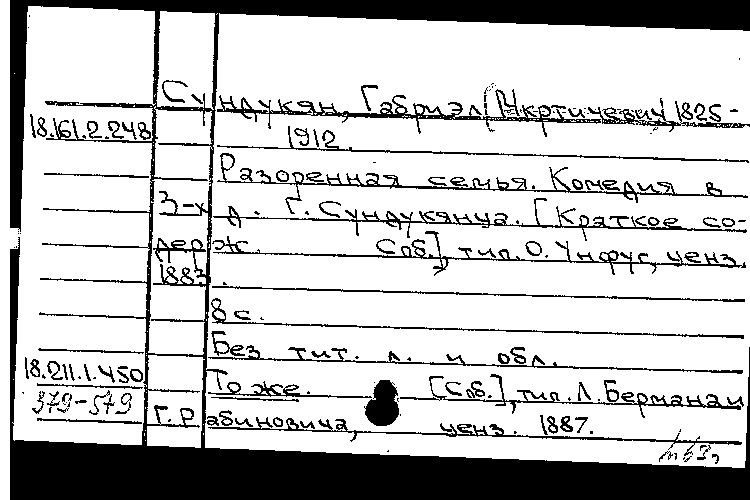 Сундукян, Габриэл (Мкртичевич), 1825-
18.161.2.248
1912.
Разоренная семья. Комедия в
3-х д. Г. Сундукянца. [Краткое со-
держ. Спб.], тип. О. Унфуг, ценз.
1883.
8 с.
Без тит. л. и обл.
18.211.1.450
То же. [Спб.], тип. Л. Бермана и
379-579
Г. Рабиновича, ценз. 1887.